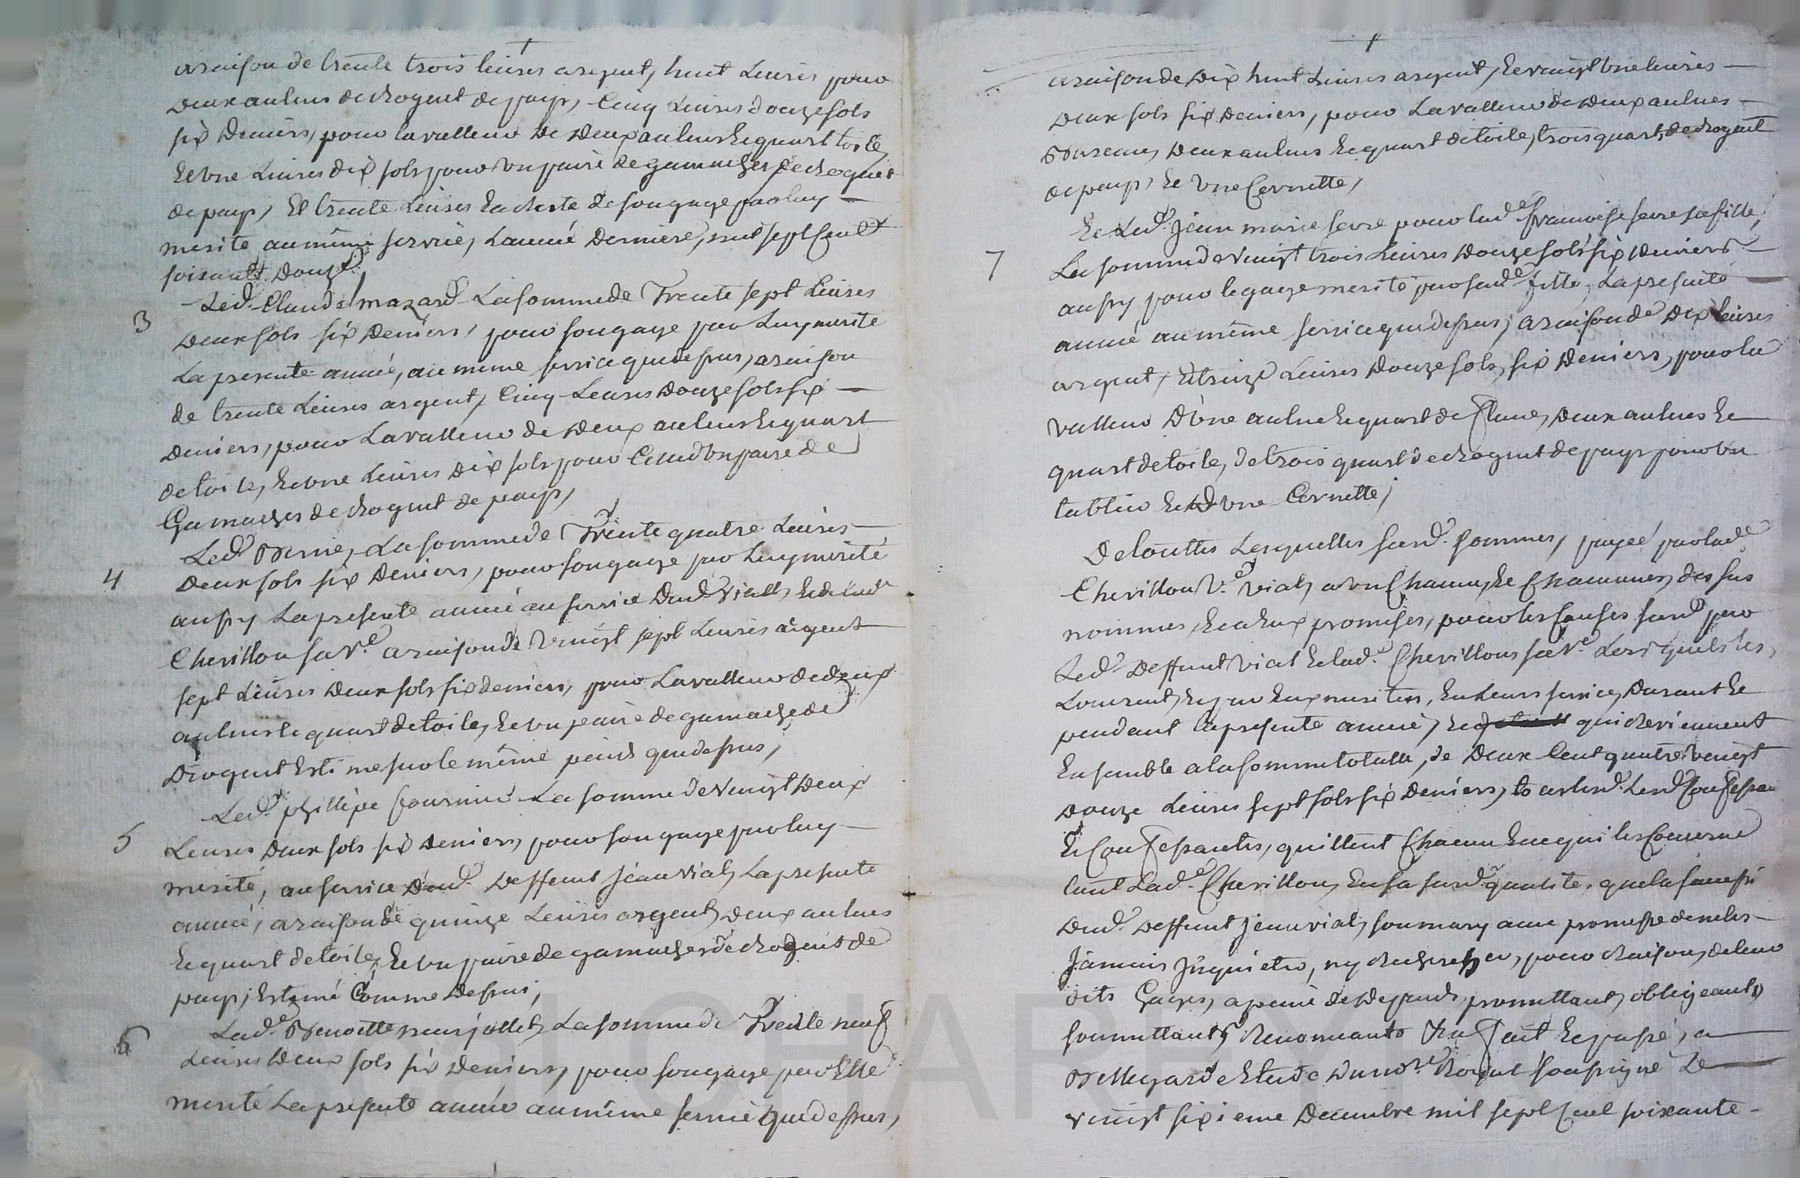 a raison de trente trois livres argent, huit Livres pour
deux aulnes de droguet de pays, Cinq Livres douze sols
six Deniers, pour la valleur de deux aulnes & quart toile
& une Livres dix sols pour un paire de gamaches de droguet
de pays, Et trente Livres En reste de son gage par luy
merité au même service, L'année Derniere, mil sept Cent
soixante Douze /
3 Led. Claude mazard La somme de Trente sept Livres
Deux sols six Deniers, pour son gage par Luy merité
La presente année, au meme service que dessus, a raison
de trente Livres argent, Cinq Livres Douze sols six
Deniers, pour La valleur de deux aulnes & quart
de toile, & une Livres Dix sols pour Celle d'un paire de
Gamaches de droguet de pays,
4 Led. La somme de Trente quatre Livres
Deux sols six Deniers, pour son gage par Luy merité
aussy La presente année au service Dud. Vial, & de lad.
Cherillon sa Ve. a raison de vingt sept Livres argent
sept Livres Deux sols six deniers, pour La valleur de deux
aulnes & quart de toile, & un paire de gamache de
Droguet Estimes sur le même pied que dessus,
5 Led. phillipe fournier La somme de vingt Deux
Livres Deux sols six Deniers, pour son gage par luy
merité, au service dud. Deffunt Jean Vial, La presente
année, a raison de quinze Livres argent, Deux aulnes
& quart de toile, & un paire de gamaches de droguet de
pays, Estimé Comme Dessus,
6 Lad. Benoitte La somme de Trente neuf
Livres Deux sols six Deniers, pour son gage par Elle
merité La presente année au même service que dessus,
a raison de Dix huit Livres argent, & vingt une livres
Deux sols six Deniers, pour La valleur de Deux aulnes
Bureau, Deux aulnes & quart de toile, trois quart de droguet
de pays, & une Cornette,
7 Et Led. Jean marie serre pour lad. francoise serre sa fille,
La somme de vingt trois Livres Douze sols six Deniers
aussy pour le gage merité par sad. fille, La presente
année au même service que dessus, a raison de Dix Livres
argent, & treize Livres Douze sols, six Deniers, pour la
valleur D'une aulne & quart de Deux aulnes &
quart de toile, de trois quart de droguet de pays pour un
tablier & d'une Cornette,
De touttes Lesquelles susd. sommes, payée par lad.
Cherillon Ve. Vial, a un Chacun, & Chacunnes, des sus
nommés, & a Eux promises, pour les Causes susd. par
Led. Deffunt Vial & lad. Cherillon sa Ve. Lors qu'ils les
Louerent, & par Eux merités, En Leurs service, Durant &
pendant la presente année, & qui reviennent
Ensemble a la somme totalle, de Deux Cent quatre vingt
Douze Livres sept sols six Deniers, Lesd. Confessants
& Confessantes, quittent Chacun En ce qui les Concerne
tant Lad. Cherillon, En sa susd. qualité, que la
Dud. Deffunt Jean vial, son mary avec promesse de ne les
Jamais Jnquieter, ny rechercher, pour raison, de leur
dits Gages, a peine de Depends, promettant, obligeants,
soumettants, Renonceants &a. fait & passé, a
Bellegarde Etude Du nore. Royal soussigné Le
vingt sixieme Decembre mil sept Cent soixante